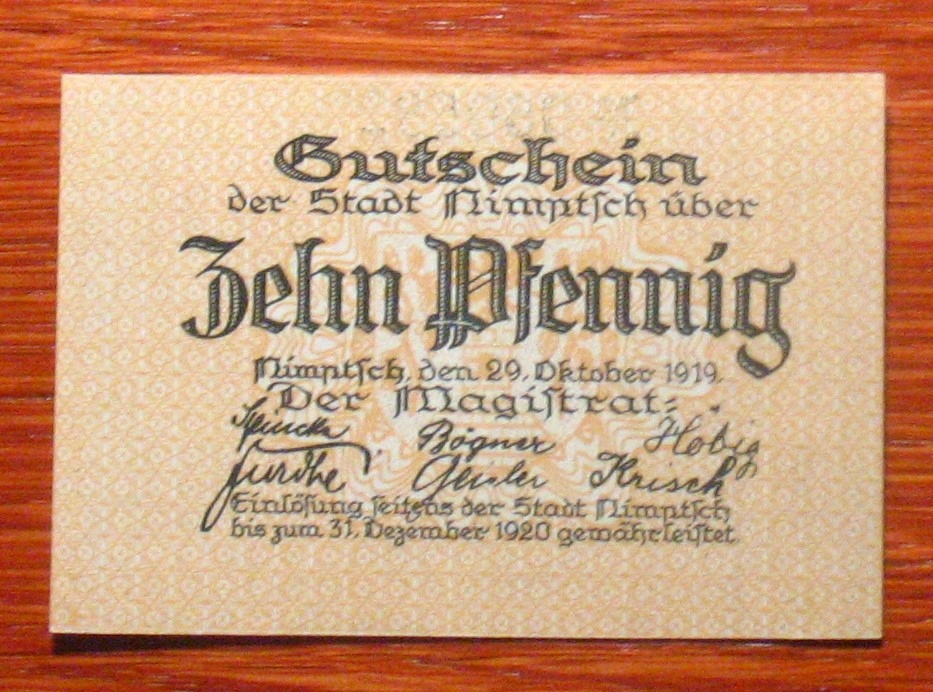 Gutschein
der Stadt Nimptsch über
Zehn Pfennig
Nimptsch, den 29. Oktober 1919.
Der Magistrat:
Bögner
Krisch
Einlösung seitens der Stadt Nimptsch
bis zum 31. Dezember 1920 gewährleistet.